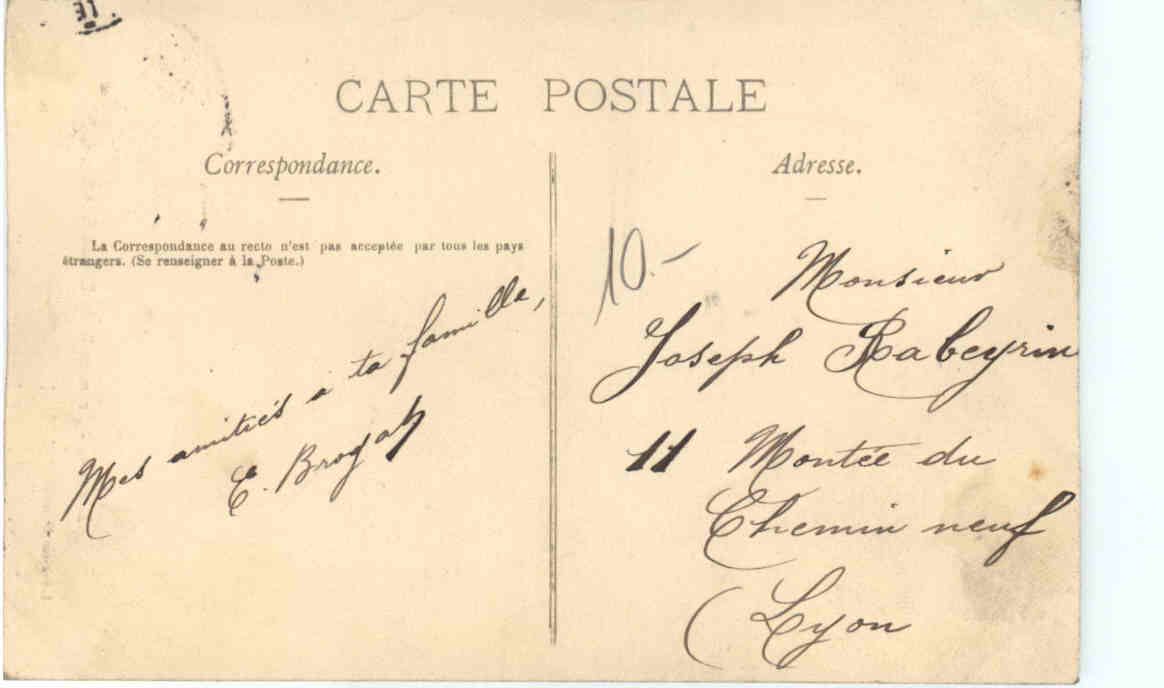 CARTE POSTALE
Correspondance.
La Correspondance au recto n'est pas acceptée par tous les pays
étrangers. (Se renseigner à la Poste.)
Mes amitiés a ta famille,
E.
Adresse.
10.-
Monsieur
Joseph Rabeyrin
11 Montée du
Chemin neuf
Lyon